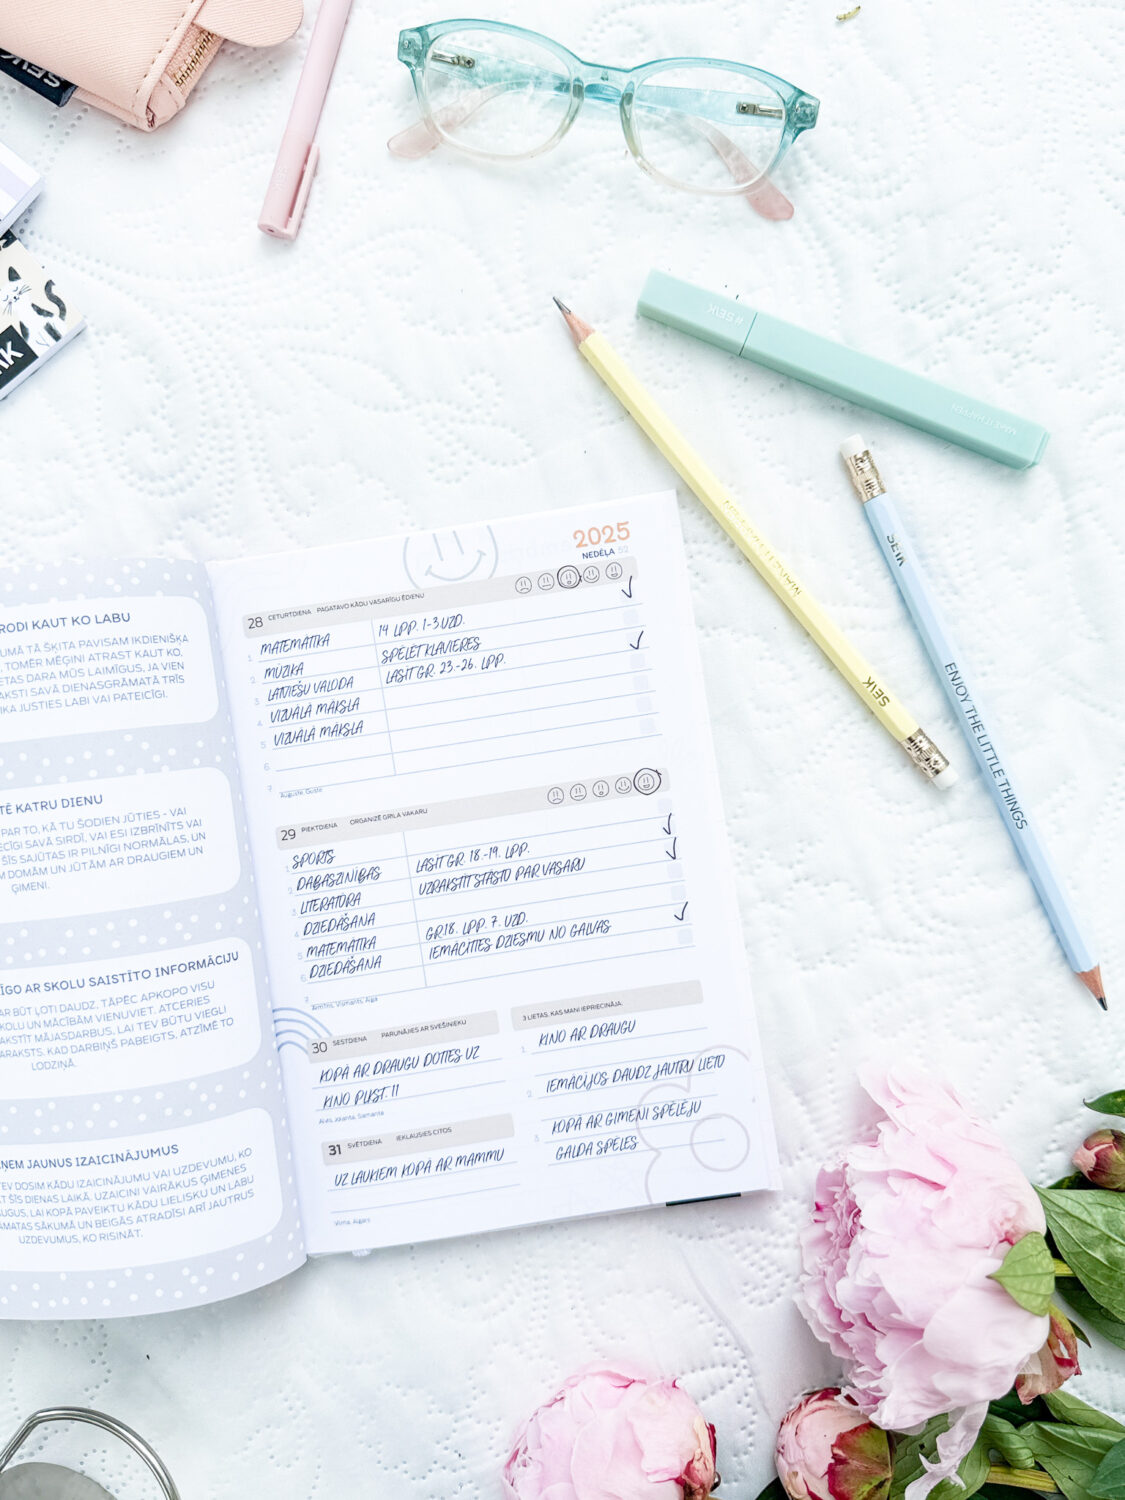 SEIK
#SEIK
MAKE IT HAPPEN
SEIK
SEIK
ENJOY THE LITTLE THINGS
RODI KAUT KO LABU
UMĀ TĀ ŠĶITA PAVISAM IKDIENIŠĶA
, TOMĒR MĒĢINI ATRAST KAUT KO,
IETAS DARA MŪS LAIMĪGUS, JA VIEN
AKSTI SAVĀ DIENASGRĀMATĀ TRĪS
IKA JUSTIES LABI VAI PATEICĪGI.
TĒ KATRU DIENU
PAR TO, KĀ TU ŠODIEN JŪTIES - VAI
ECĪGI SAVĀ SIRDĪ, VAI ESI IZBRĪNĪTS VAI
ŠĪS SAJŪTAS IR PILNĪGI NORMĀLAS, UN
M DOMĀM UN JŪTĀM AR DRAUGIEM UN
ĢIMENI.
ĪGO AR SKOLU SAISTĪTO INFORMĀCIJU
AR BŪT ĻOTI DAUDZ, TĀPĒC APKOPO VISU
KOLU UN MĀCĪBĀM VIENUVIET. ATCERIES
AKSTĪT MĀJASDARBUS, LAI TEV BŪTU VIEGLI
ARAKSTS. KAD DARBIŅŠ PABEIGTS, ATZĪMĒ TO
LODZIŅĀ.
ŅEM JAUNUS IZAICINĀJUMUS
TEV DOSIM KĀDU IZAICINĀJUMU VAI UZDEVUMU, KO
T ŠĪS DIENAS LAIKĀ. UZAICINI VAIRĀKUS ĢIMENES
AUGUS, LAI KOPĀ PAVEIKTU KĀDU LIELISKU UN LABU
AMATAS SĀKUMĀ UN BEIGĀS ATRADĪSI ARĪ JAUTRUS
UZDEVUMUS, KO RISINĀT.
2025
NEDĒĻA 52
28 CETURTDIENA PAGATAVO KĀDU VASARĪGU ĒDIENU
1. MATEMĀTIKA 14 LPP. 1-3 UZD.
2. MŪZIKA SPĒLĒT KLAVIERES
3. LATVIEŠU VALODA LASĪT GR. 23.-26. LPP.
4. VIZUĀLĀ MĀKSLA
5. VIZUĀLĀ MĀKSLA
6.
7.
Auguste, Guste
29 PIEKTDIENA ORGANIZĒ GRILA VAKARU
1. SPORTS
2. DABASZINĪBAS LASĪT GR. 18.-19. LPP.
3. LITERATŪRA UZRAKSTĪT STĀSTO PAR VASARU
4. DZIEDĀŠANA
5. MATEMĀTIKA GR.18. LPP. 7. UZD.
6. DZIEDĀŠANA IEMĀCĪTIES DZIESMU NO GALVAS
7.
Armīns, Vismants, Aiga
30 SESTDIENA PARUNĀJIES AR SVEŠINIEKU
KOPĀ AR DRAUGU DOTIES UZ
KINO PLKST. 11
Alvis, Jolanta, Samanta
31 SVĒTDIENA IEKLAUSIES CITOS
UZ LAUKIEM KOPĀ AR MAMMU
Vilma, Aigars
3 LIETAS, KAS MANI IEPRIECINĀJA:
1. KINO AR DRAUGU
2. IEMĀCĪJOS DAUDZ JAUTRU LIETO
3. KOPĀ AR ĢIMENI SPĒLĒJU
GALDA SPĒLES